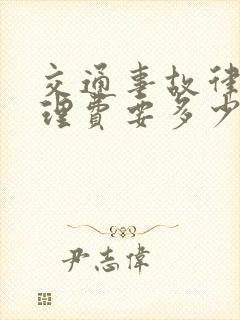 交通事故律
理费要多少
尹志伟